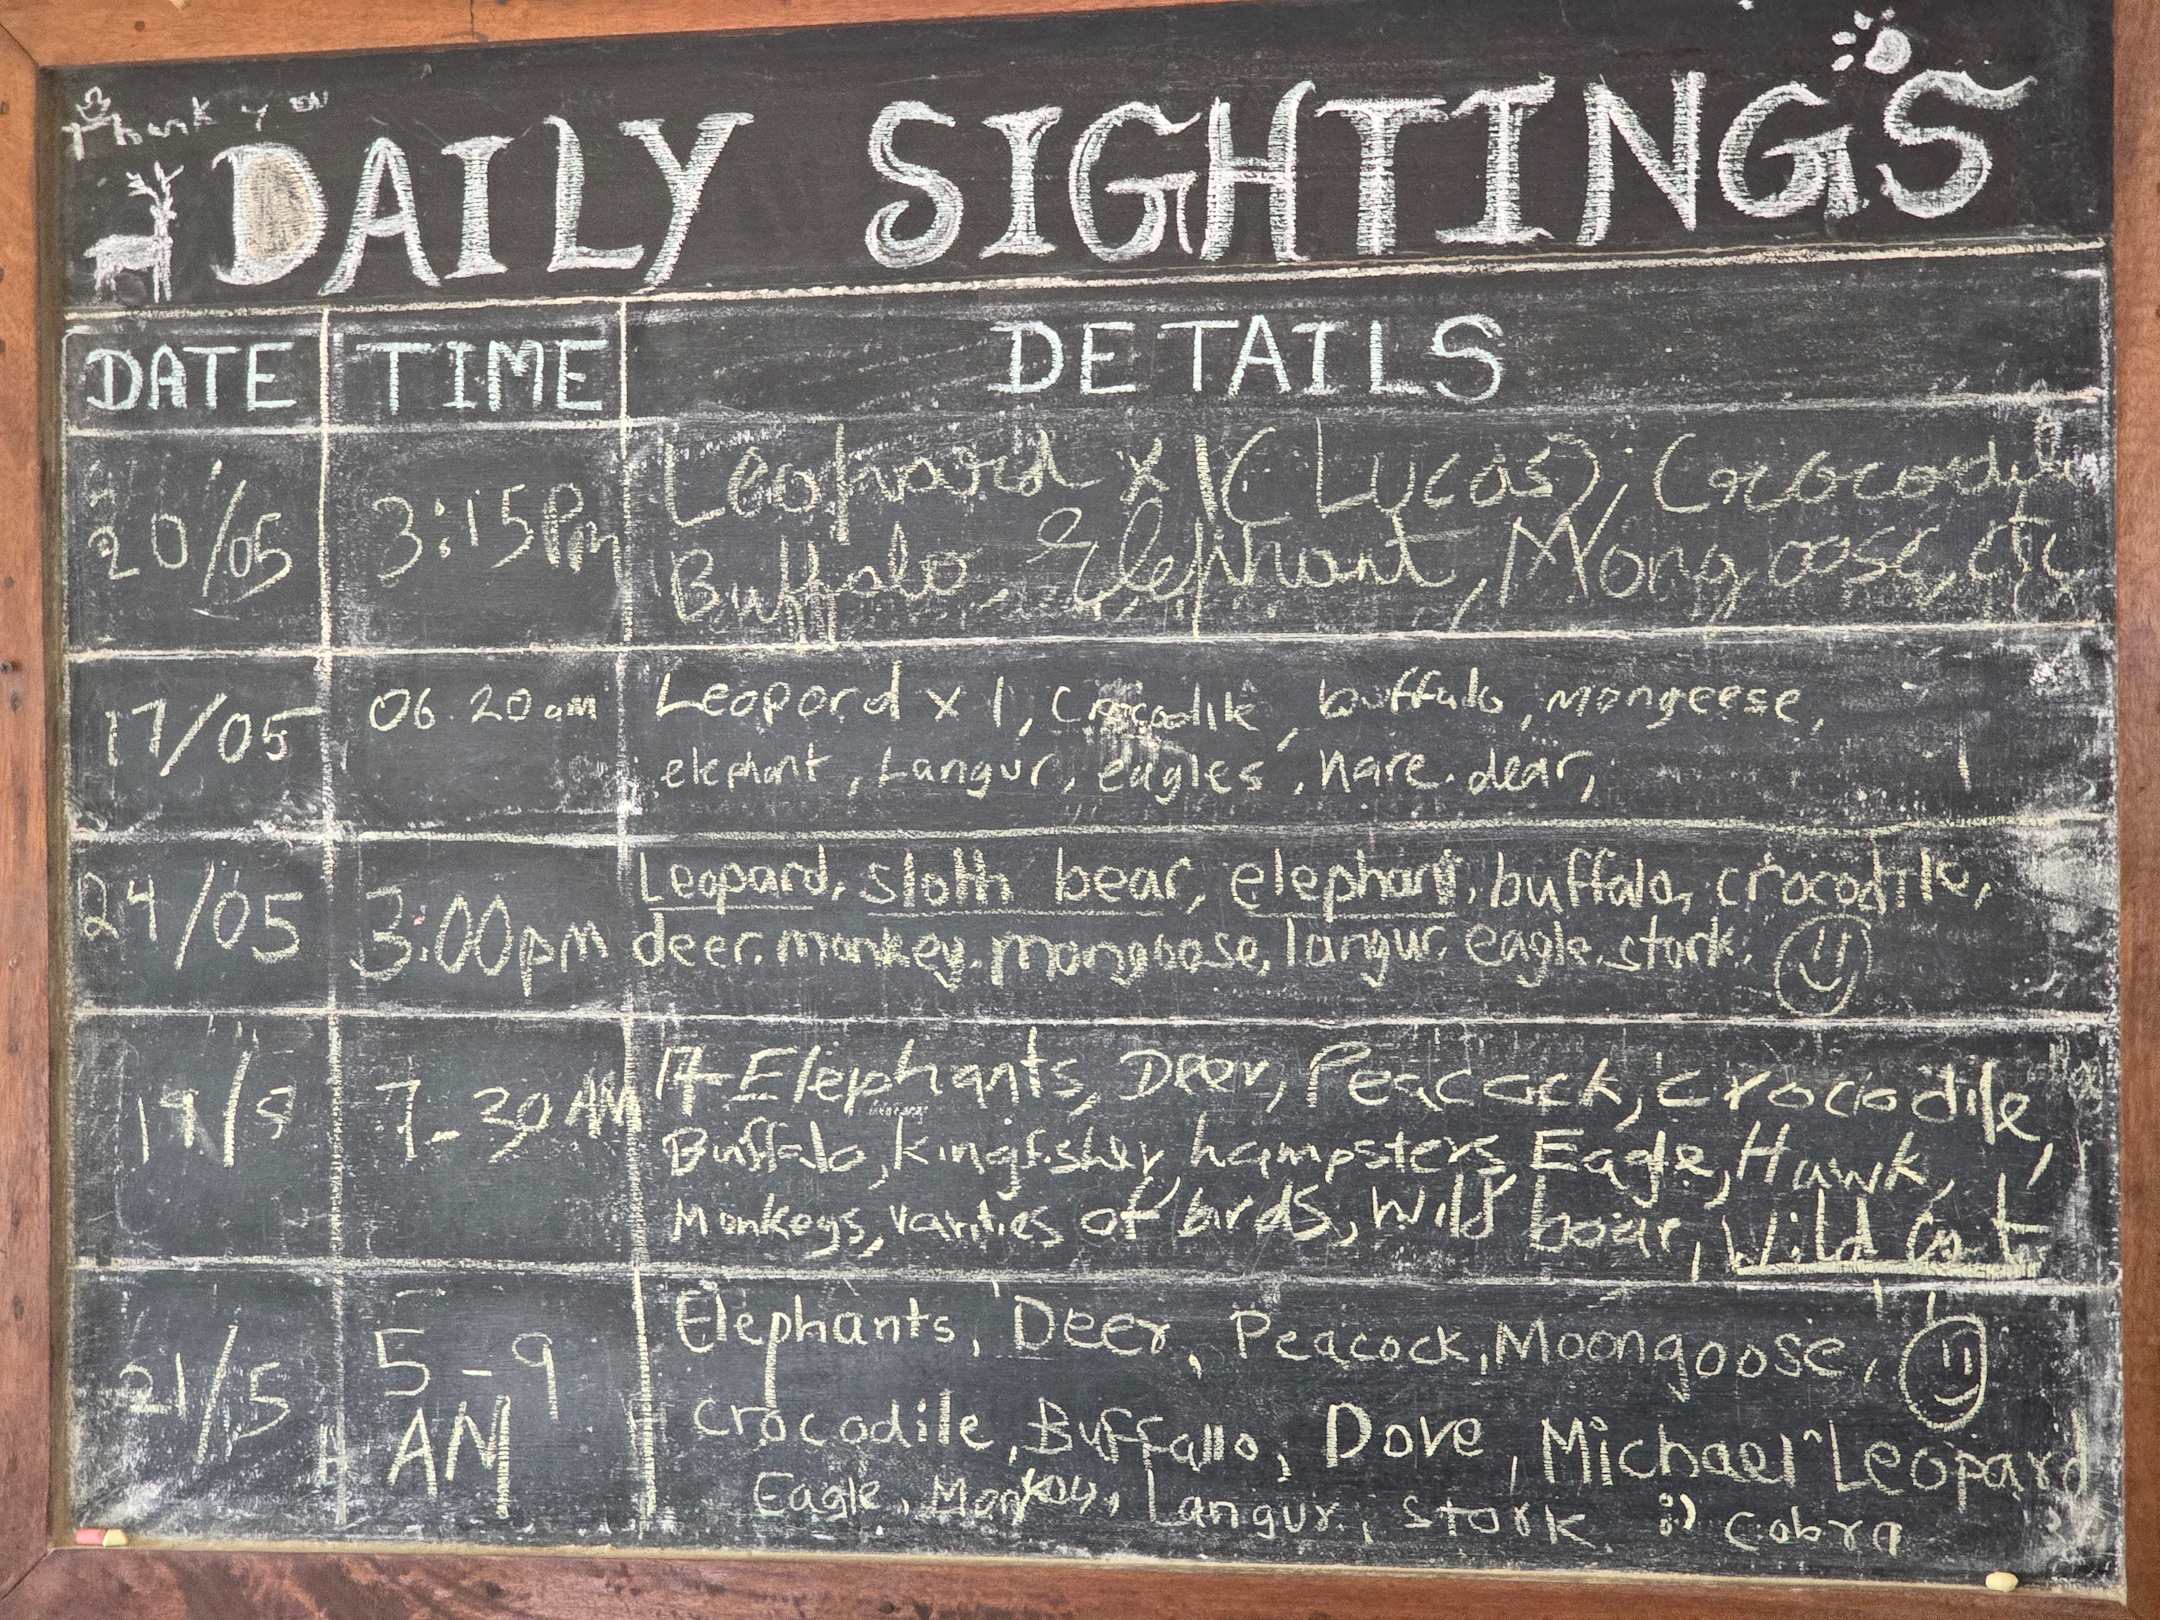 Thank you
DAILY SIGHTINGS
DATE TIME DETAILS
20/05 3:15Pm Leopard x 1 (Lucas), Crocodile
Buffalo, Elephant, Mongoose, etc
17/05 06.20am Leopard x 1, Crocodile, buffulo, mongeese,
elephant, Langur, eagles, hare. dear,
24/05 3:00pm Leopard, sloth bear, elephant, buffalo, crocodile,
deer. monkey. mongoose, langur. eagle. stork.
19/5 7-30AM 17 Elephants, Deer, Peacock, crocodile,
Buffalo, kingfisher hampsters, Eagle, Hawk,
Monkeys, varities of birds, Wild boar, Wild cat
21/5 5-9 AM Elephants, Deer, Peacock, Moongoose,
crocodile, Buffallo, Dove, Michael Leopard
Eagle, Monkey, Langur, stork :) cobra